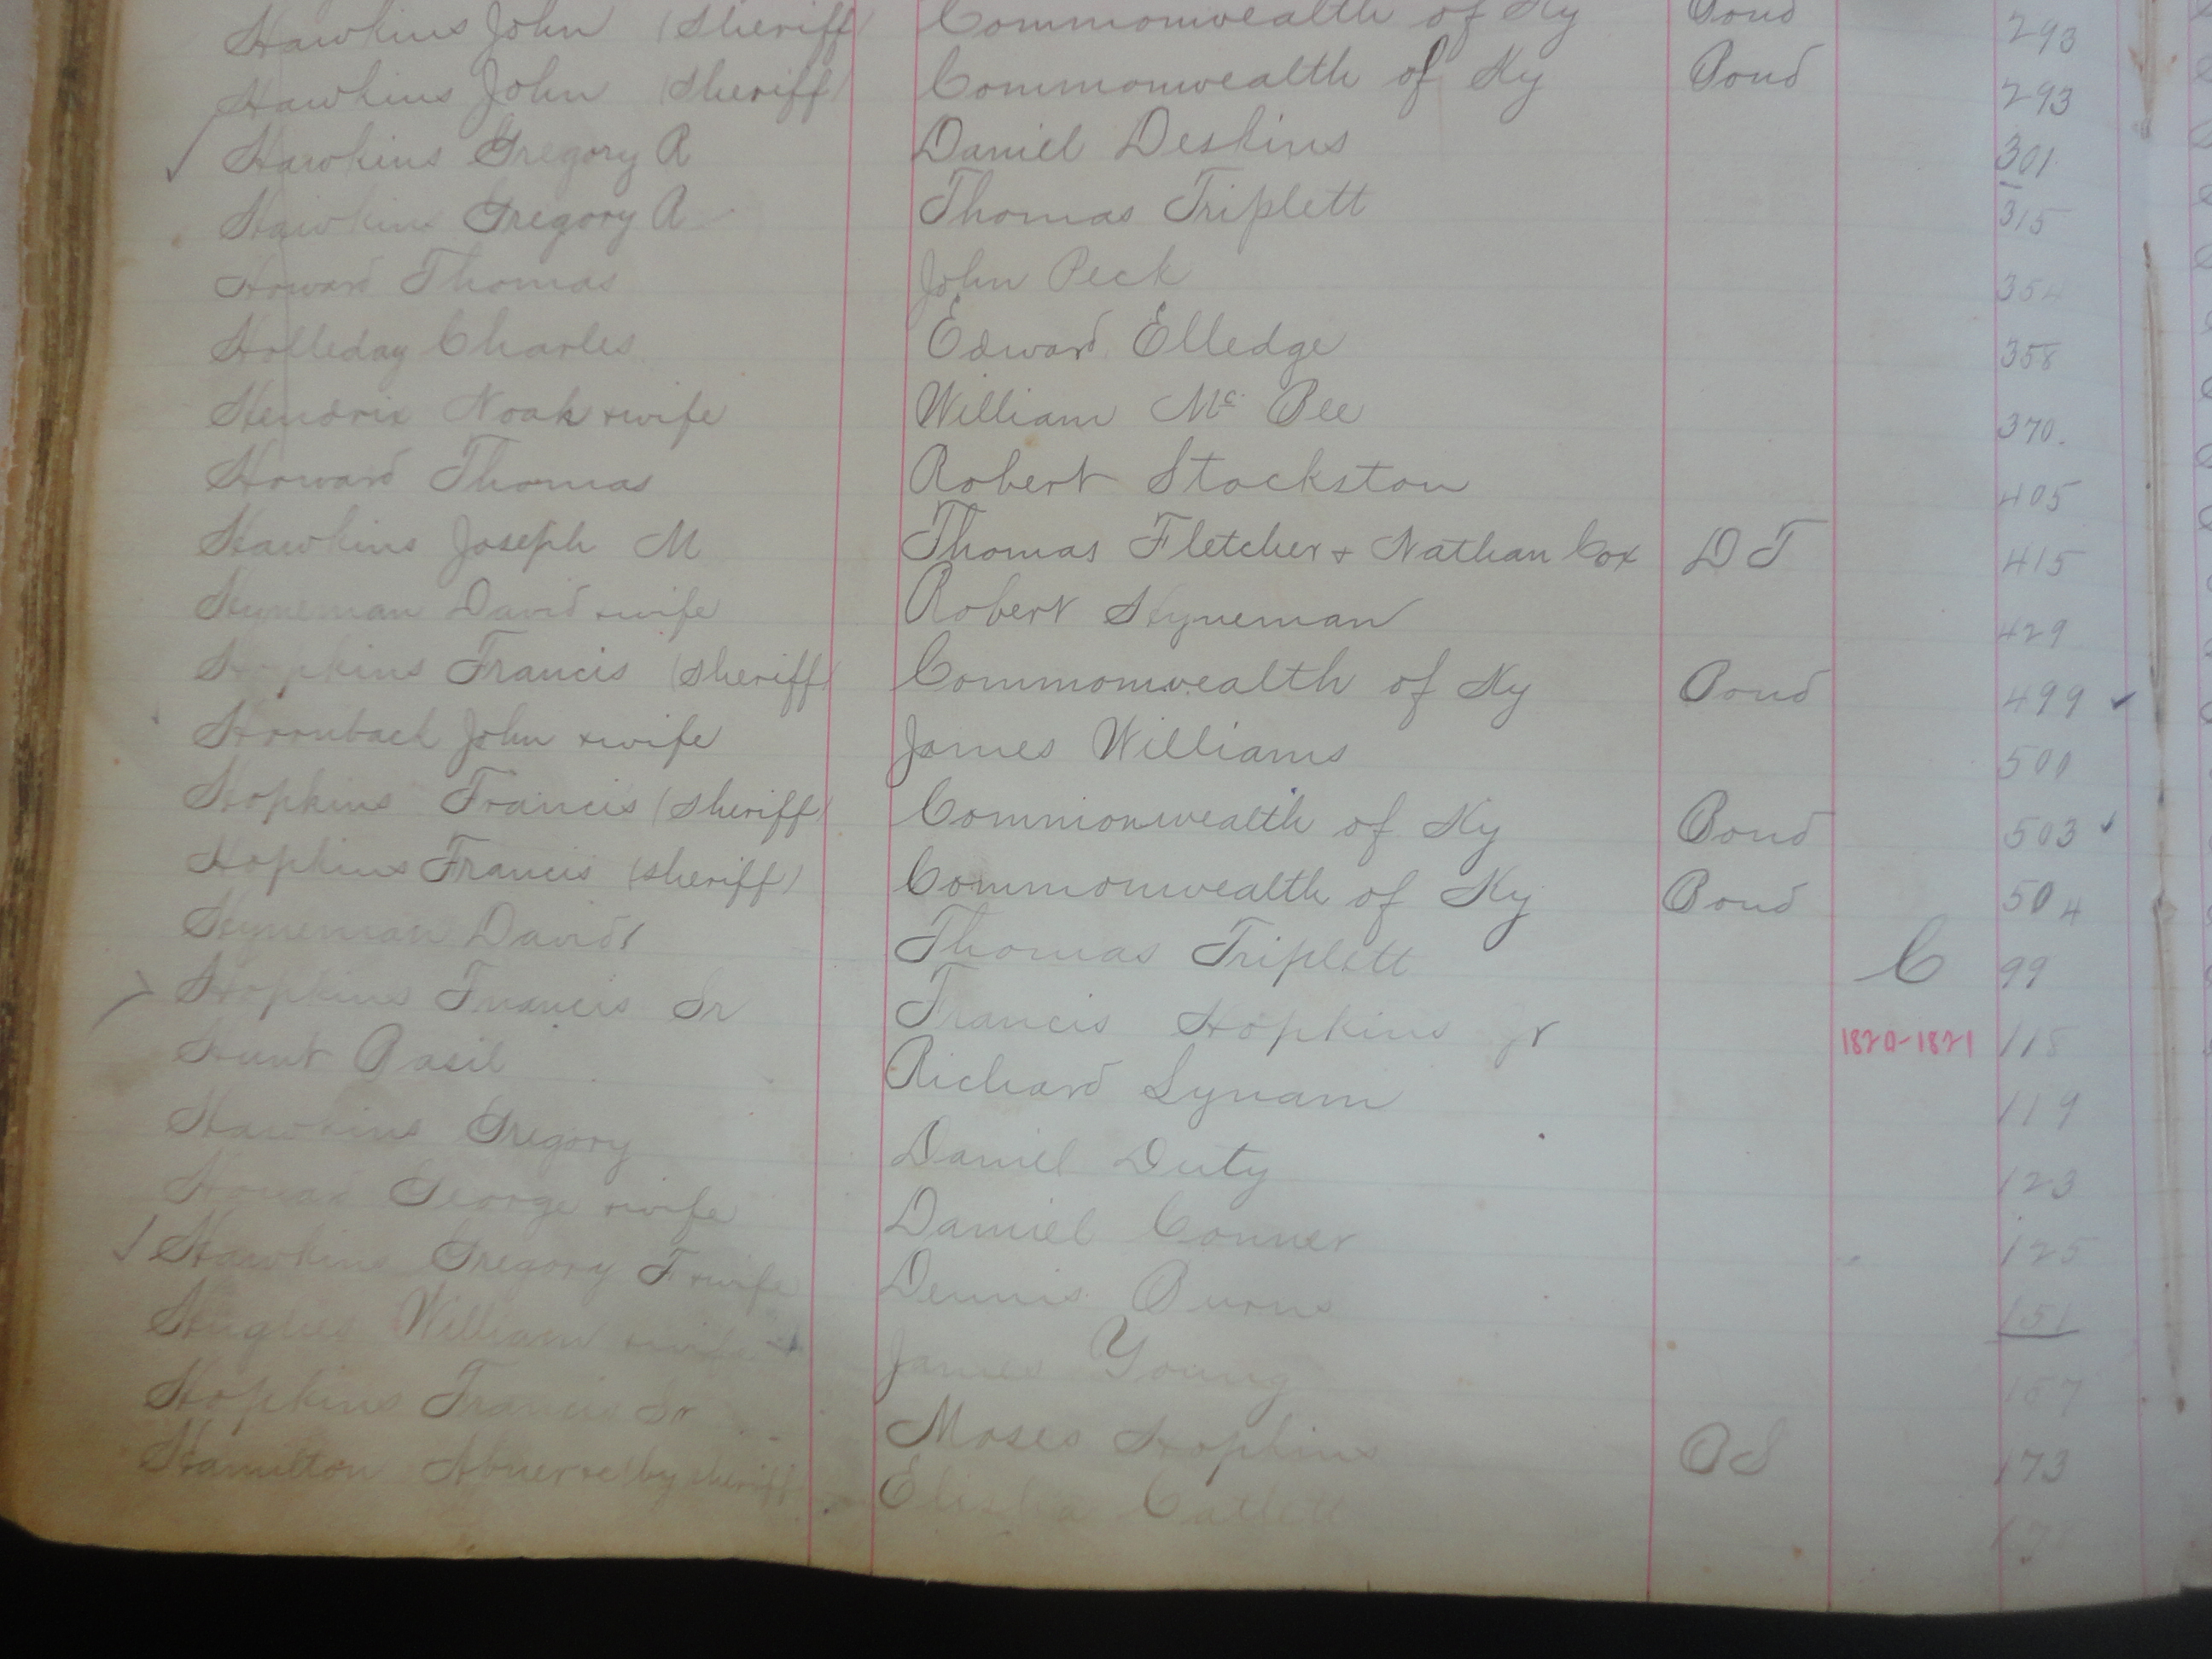 Hawkins John (Sheriff) Commonwealth of Ky Bond 293
Hawkins John (Sheriff) Commonwealth of Ky Bond 293
Hawkins Gregory R Daniel Deskins 301
Hawkins Gregory R Thomas Triplett 315
Howard Thomas John Peck 354
Holleday Charles Edward Elledge 358
Hendrix Noah & wife William Mc Bee 370.
Howard Thomas Robert Stockston 405
Hawkins Joseph M Thomas Fletcher & Nathan Cox D T 415
Hyneman David & wife Robert Hyneman 429
Hopkins Francis (Sheriff) Commonwealth of Ky Bond 499
Hornback John & wife James Williams 500
Hopkins Francis (Sheriff) Commonwealth of Ky Bond 503
Hopkins Francis (Sheriff) Commonwealth of Ky Bond 504
Hyneman David Thomas Triplett C 99
Hopkins Francis Sr Francis Hopkins Jr 1820-1821 115
Hunt Basil Richard Lynam 119
Hawkins Gregory Daniel Duty 123
George & wife Daniel Conner 125
Hawkins Gregory F & wife Dennis Burns 151
Hughes William & wife James Young 157
Hopkins Francis Sr Moses Hopkins B S 173
Hamilton Abner &c by sheriff Elisha Catlett